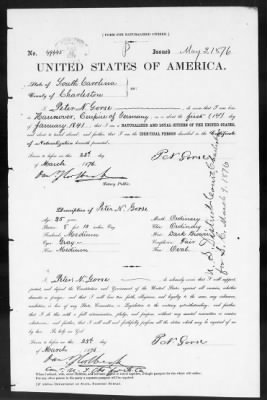 [FORM FOR NATURALIZED CITIZEN.]
No. Issued May 2, 1876
UNITED STATES OF AMERICA.
State of South Carolina
County of Charleston
I, Peter N. Gorse, do swear that I was born in
Hannover, Empire of Germany, on or about the first (1st) day of
January 1841; that I am a NATURALIZED AND LOYAL CITIZEN OF THE UNITED STATES,
and about to travel abroad; and further, that I am the IDENTICAL PERSON described in the Certificate
of Naturalization herewith presented.
Sworn to before me, this 25th day
of March 1876
P N Gorse
Notary Public.
Description of Peter N. Gorse
Age: 35 years
Mouth: Ordinary
Stature: 5 feet 10 inches, Eng.
Chin: Ordinary
Forehead: Medium
Hair: Dark Brown
Eyes: Gray
Complexion: Fair
Nose: Medium
Face: Oval
I, Peter N. Gorse, do solemnly swear that I will support,
protect, and defend the Constitution and Government of the United States against all enemies, whether
domestic or foreign; and that I will bear true faith, allegiance, and loyalty to the same, any ordinance,
resolution, or law of any State, Convention, or Legislature to the contrary notwithstanding; and further,
that I do this with a full determination, pledge, and purpose, without any mental reservation or evasion
whatsoever; and further, that I will well and faithfully perform all the duties which may be required of me
by law. So help me God.
Sworn to before me, this 25th day
of March 1876
P N Gorse